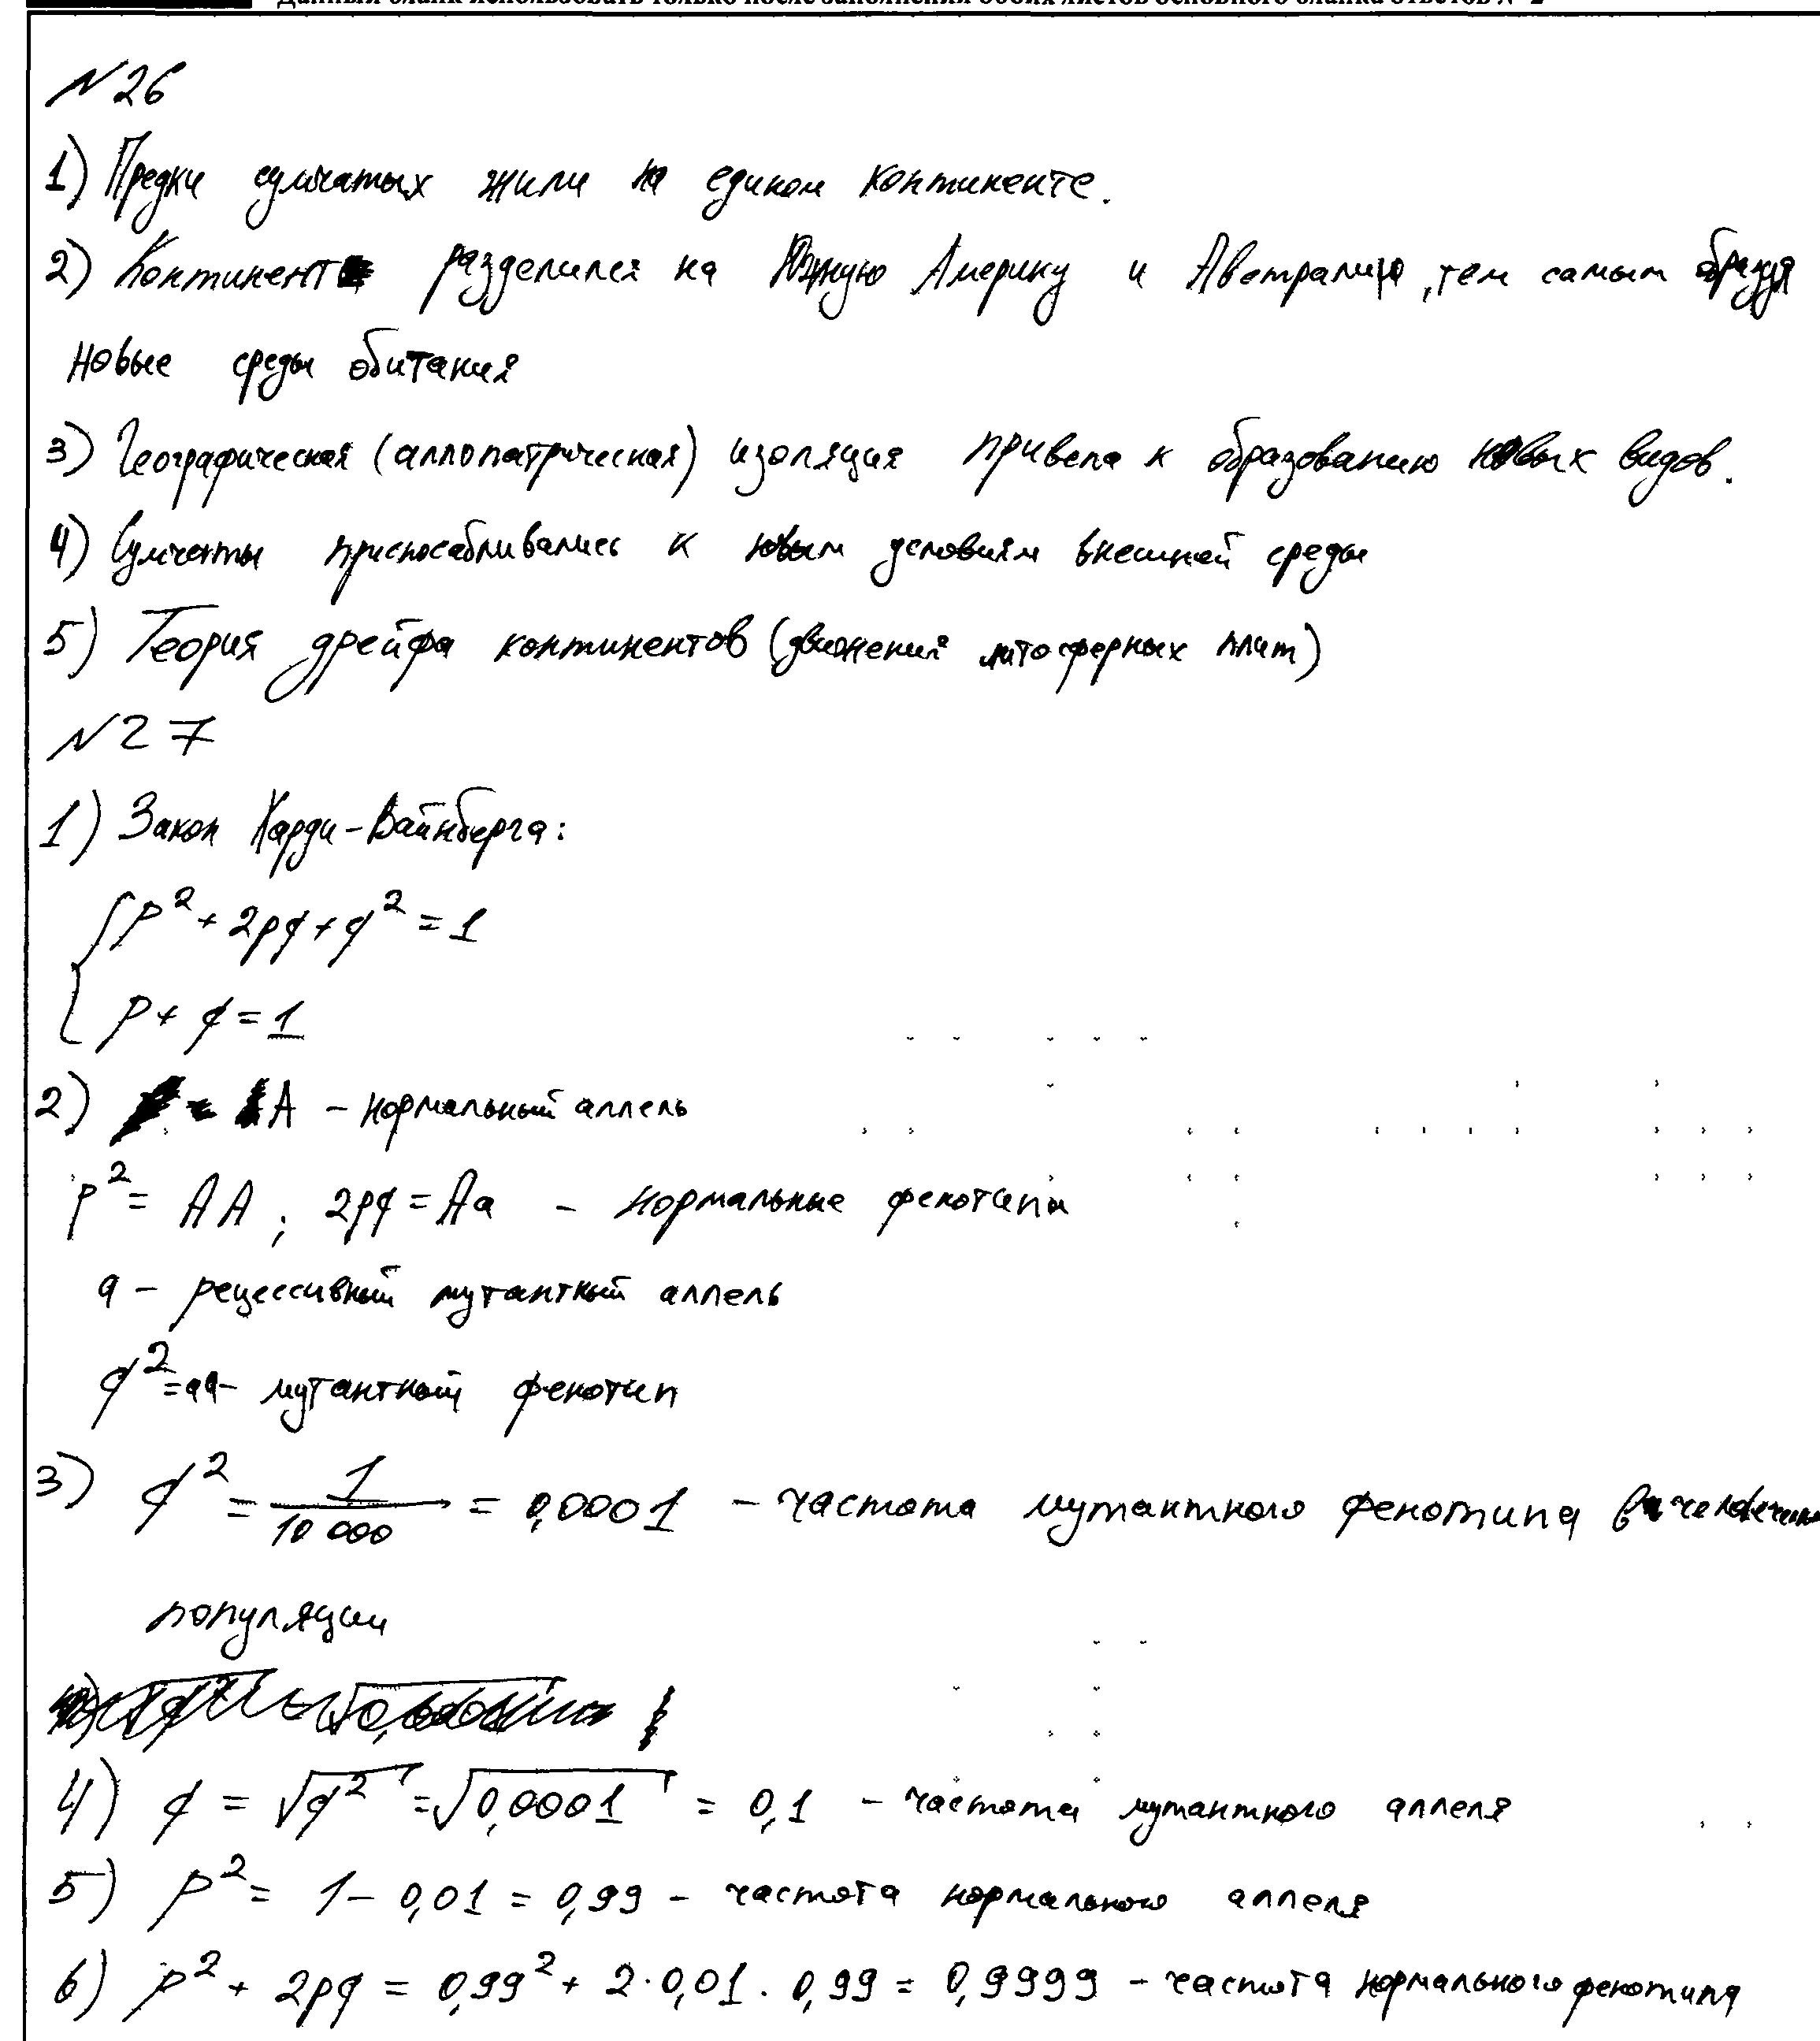 Данный бланк использовать только после заполнения обоих листов основного бланка ответов № 2
№26
1) Предки сумчатых жили на едином континенте.
2) Континент разделился на Южную Америку и Австралию, тем самым образуя
новые среды обитания
3) Географическая (аллопатрическая) изоляция привела к образованию новых видов.
4) Сумчаты приспосабливались к новым условиям внешней среды
5) Теория дрейфа континентов (движения литосферных плит)
№27
1) Закон Харди-Вайнберга:
p² + 2pq + q² = 1
p + q = 1
2) A - нормальный аллель
p² = AA ; 2pq = Aa - нормальные фенотипы
a - рецессивный мутантный аллель
q² = aa - мутантный фенотип
3) q² = 1/10 000 = 0,0001 - частота мутантного фенотипа в человеческой
популяции
4) q = √q² = √0,0001 = 0,1 - частота мутантного аллеля
5) p² = 1 - 0,01 = 0,99 - частота нормального аллеля
6) p² + 2pq = 0,99² + 2·0,01·0,99 = 0,9999 - частота нормального фенотипа